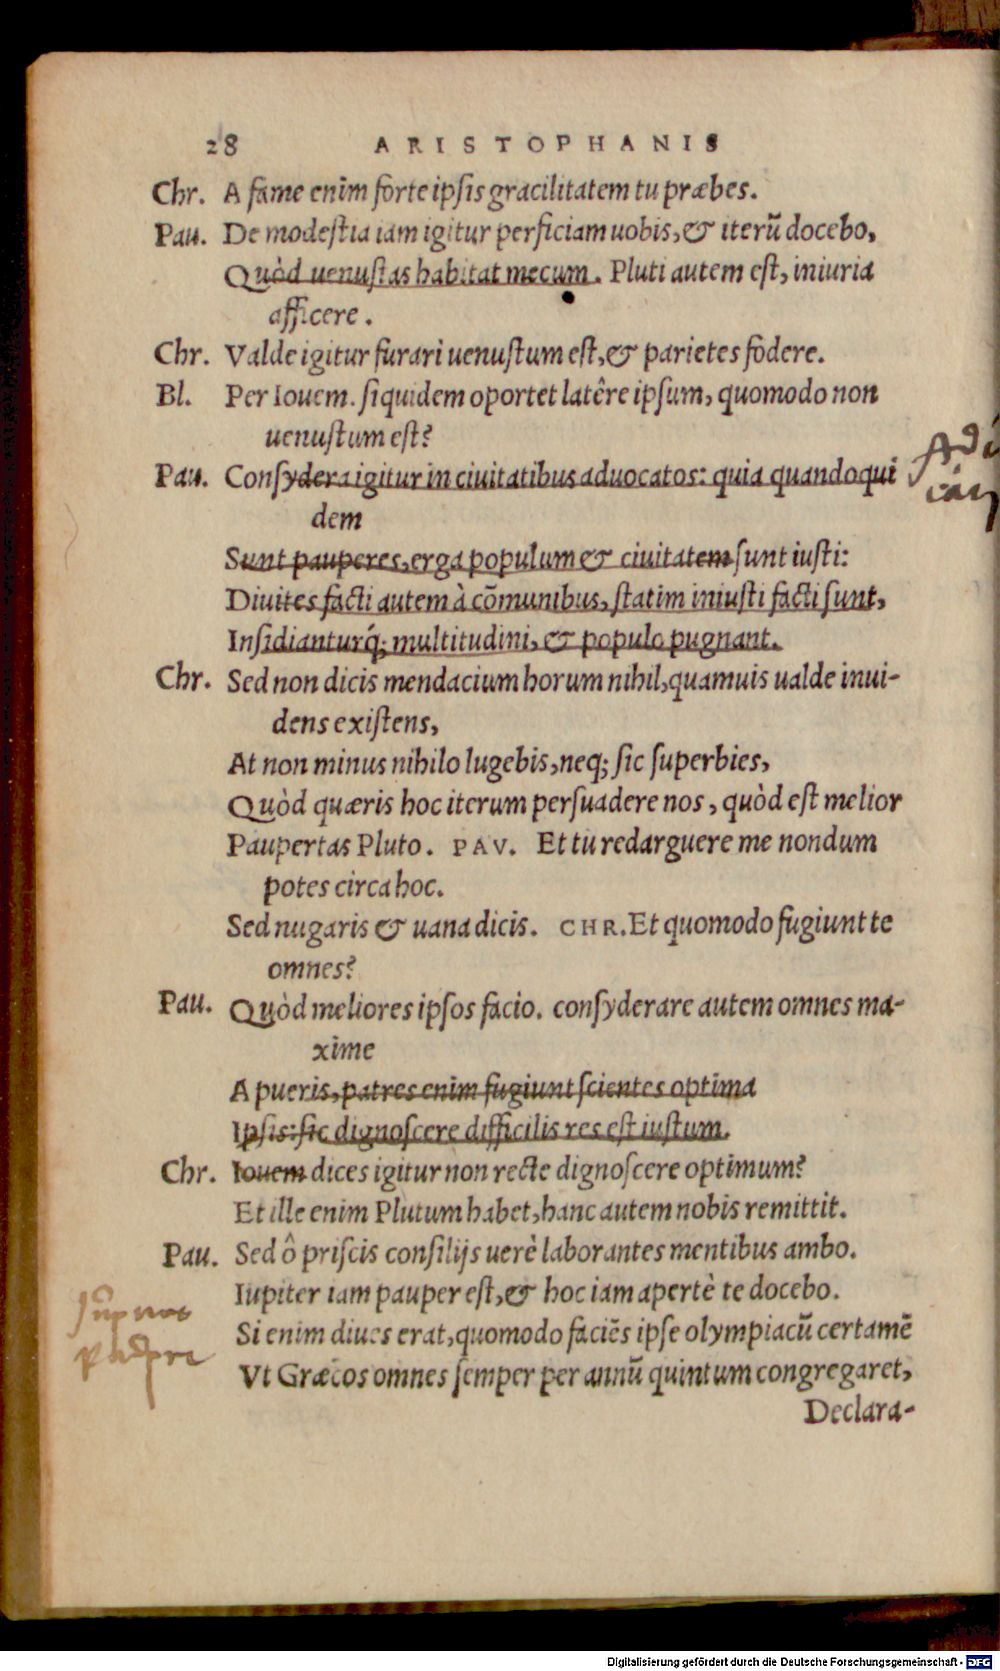 28 ARISTOPHANIS
Chr. A fame enim forte ipsis gracilitatem tu præbes.
Pau. De modestia iam igitur perficiam uobis, & iterũ docebo,
Quòd uenustas habitat mecum. Pluti autem est, iniuria
afficere.
Chr. Valde igitur furari uenustum est, & parietes fodere.
Bl. Per Iouem. siquidem oportet latêre ipsum, quomodo non
uenustum est?
Pau. Consydera igitur in ciuitatibus aduocatos: quia quandoqui
dem
Sunt pauperes, erga populum & ciuitatem sunt iusti:
Diuites facti autem à cõmunibus, statim iniusti facti sunt,
Insidianturq́; multitudini, & populo pugnant.
Chr. Sed non dicis mendacium horum nihil, quamuis ualde inui-
dens existens,
At non minus nihilo lugebis, neq; sic superbies,
Quòd quæris hoc iterum persuadere nos, quòd est melior
Paupertas Pluto. PAV. Et tu redarguere me nondum
potes circa hoc.
Sed nugaris & uana dicis. CHR. Et quomodo fugiunt te
omnes?
Pau. Quòd meliores ipsos facio. consyderare autem omnes ma-
xime
A pueris, patres enim fugiunt scientes optima
Ipsis: sic dignoscere difficilis res est iustum.
Chr. Iouem dices igitur non recte dignoscere optimum?
Et ille enim Plutum habet, hanc autem nobis remittit.
Pau. Sed ô priscis consilijs uerè laborantes mentibus ambo.
Iupiter iam pauper est, & hoc iam apertè te docebo.
Si enim diues erat, quomodo faciẽs ipse olympiacũ certamẽ
Vt Græcos omnes semper per annũ quintum congregaret,
Declara-
Digitalisierung gefördert durch die Deutsche Forschungsgemeinschaft - DFG